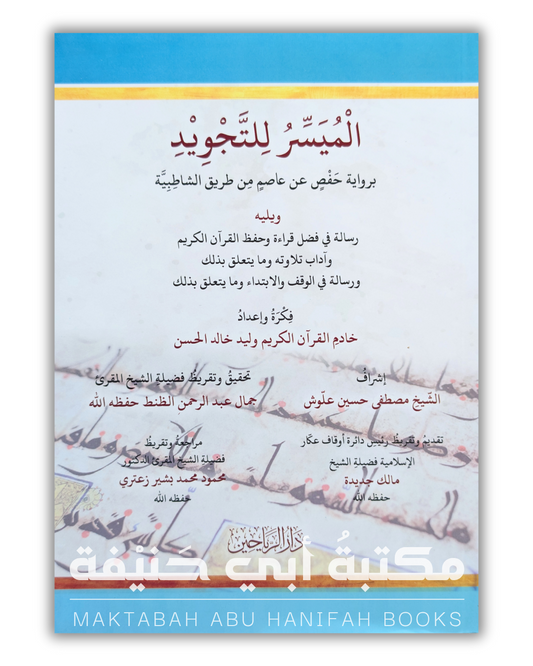 الْمُيَسَّرُ لِلتَّجْوِيْدِ
برواية حَفْصٍ عن عاصمٍ مِن طريق الشاطِبِيَّة
ويليه
رسالة في فضل قراءة وحفظ القرآن الكريم
وآداب تلاوته وما يتعلق بذلك
ورسالة في الوقف والابتداء وما يتعلق بذلك
فِكْرَةُ وإعدادُ
خادمِ القرآن الكريم وليد خالد الحسن
إشرافُ
الشّيخ مصطفى حسين علّوش
تحقيقُ وتقريظُ فضيلةِ الشيخ المقرئ
جمال عبد الرحمن الظنط حفظه الله
تقديمُ وتقريظُ رئيسِ دائرة أوقاف عكّار
الإسلامية فضيلةِ الشيخ
مالك جديدة
حفظه الله
مراجعةُ وتقريظُ
فضيلةِ الشيخ المقرئ الدكتور
محمود محمد بشير زعتري
حفظه الله
دار الرياحين
مكتبةُ أبي حَنيْفة
MAKTABAH ABU HANIFAH BOOKS